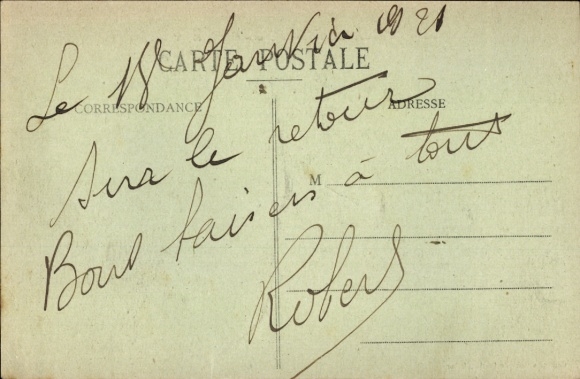 Le 18 Janvier 1921
CARTE POSTALE
CORRESPONDANCE
ADRESSE
sur le retour
Bons baisers à tous
M
Robert